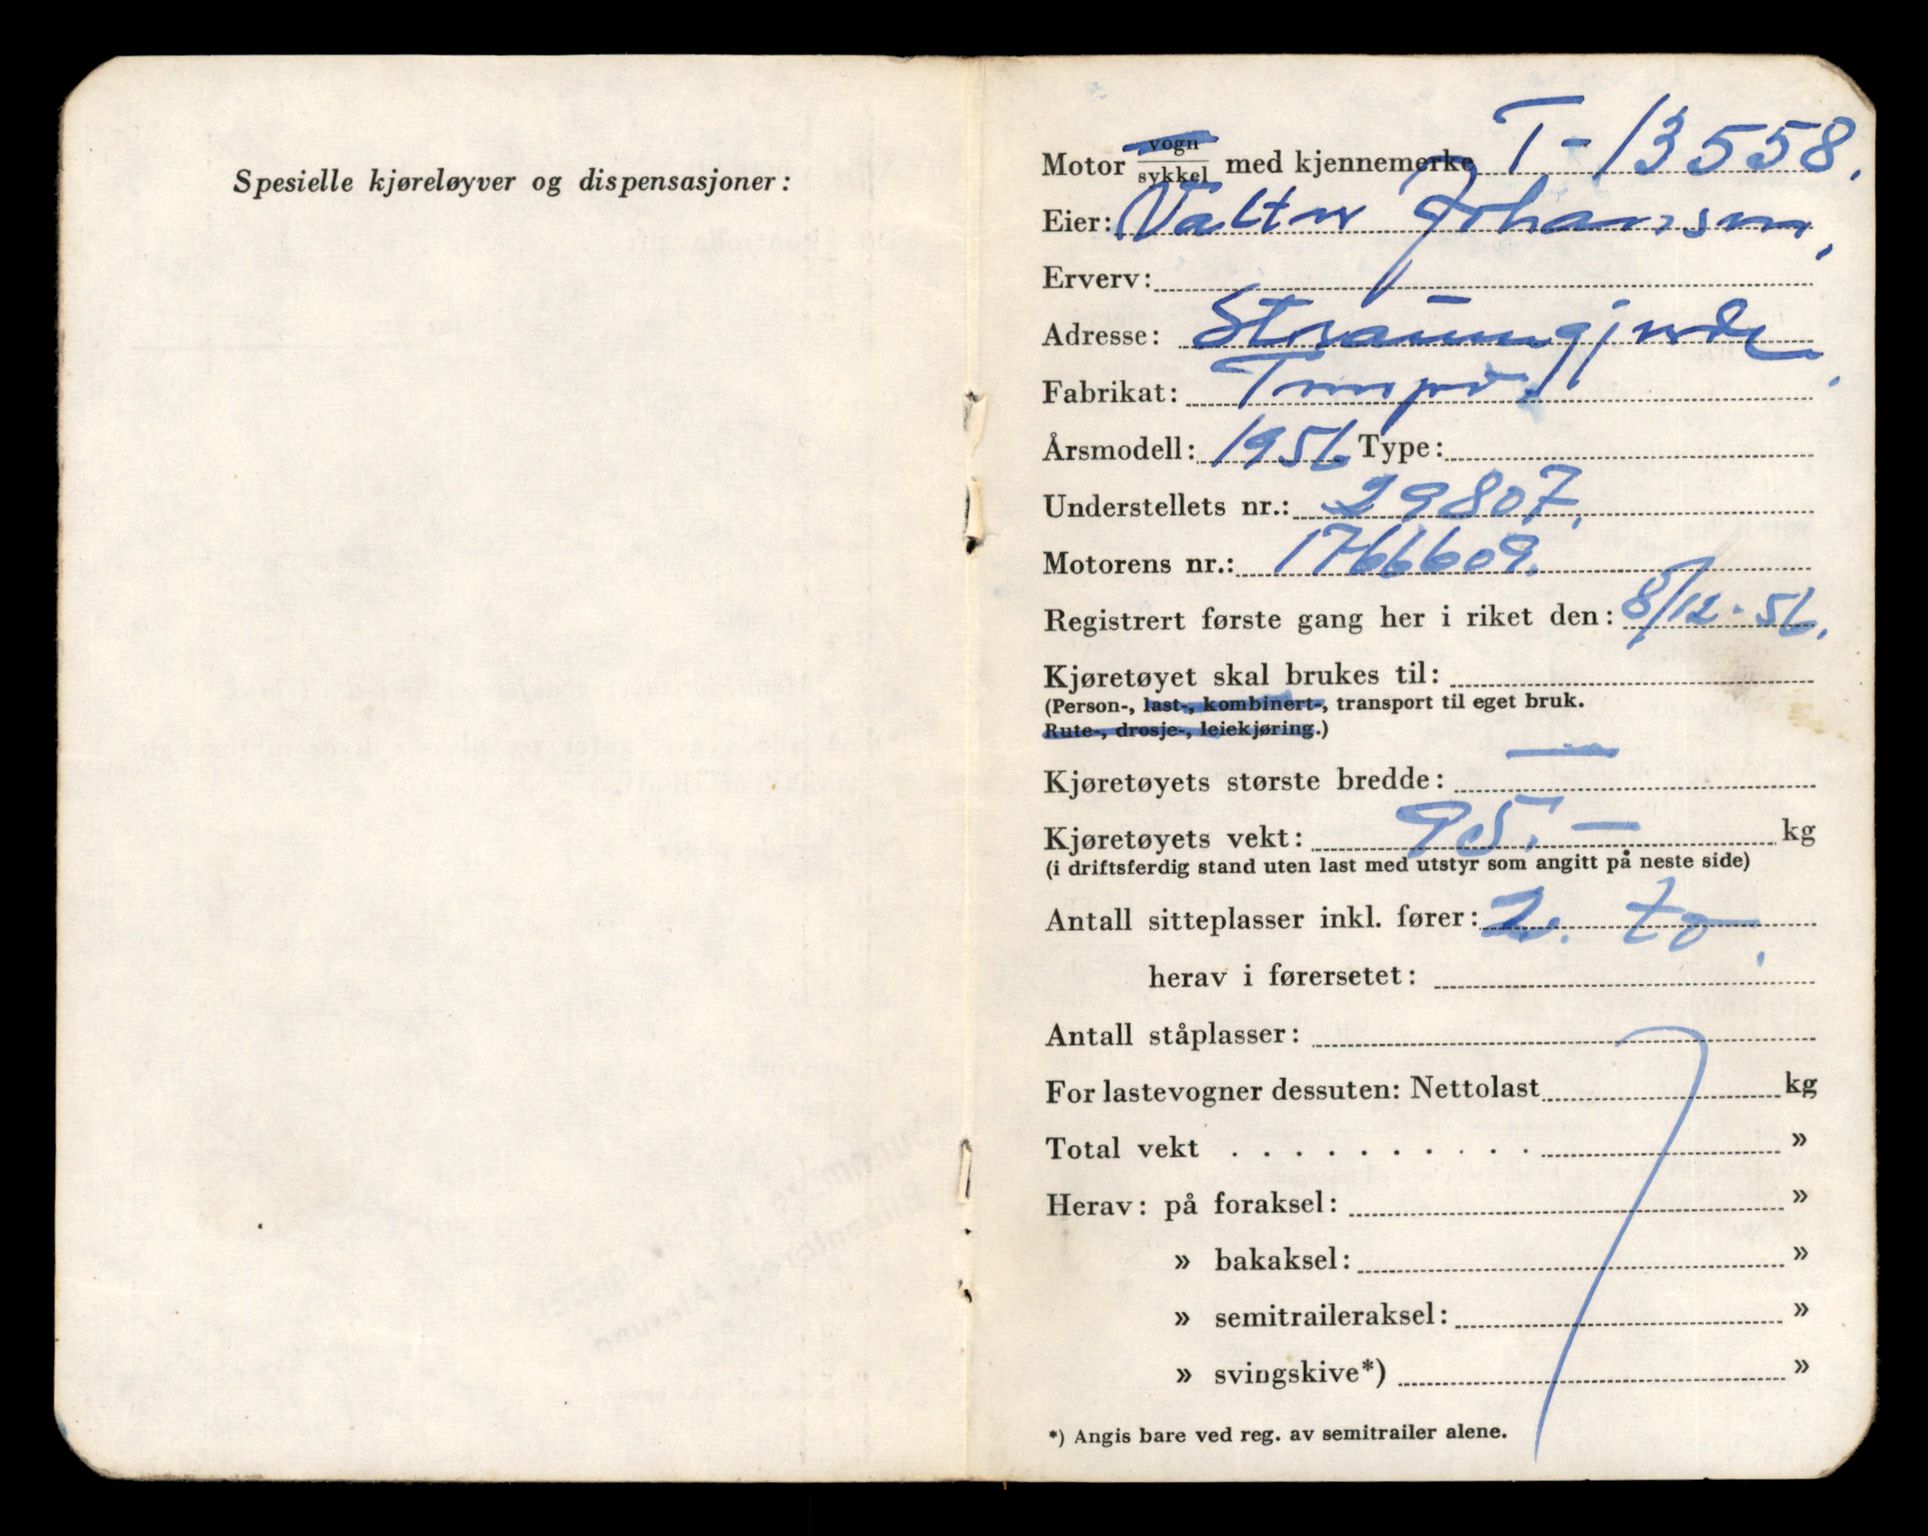 Spesielle kjøreløyver og dispensasjoner:
Motor vogn/sykkel med kjennemerke T-13558.
Eier: Valter Johansen,
Erverv:
Adresse: Straumgjerde
Fabrikat: Tempo.
Årsmodell: 1956 Type:
Understellets nr.: 29807.
Motorens nr.: 1766609.
Registrert første gang her i riket den: 8/12-56.
Kjøretøyet skal brukes til:
(Person-, last-, kombinert-, transport til eget bruk.
Rute-, drosje-, leiekjøring.)
Kjøretøyets største bredde: —
Kjøretøyets vekt: 95.— kg
(i driftsferdig stand uten last med utstyr som angitt på neste side)
Antall sitteplasser inkl. fører: 2. to.
herav i førersetet:
Antall ståplasser:
For lastevogner dessuten: Nettolast kg
Total vekt . . . . . . . . . . »
Herav: på foraksel: »
» bakaksel: »
» semitraileraksel: »
» svingskive*) »
*) Angis bare ved reg. av semitrailer alene.